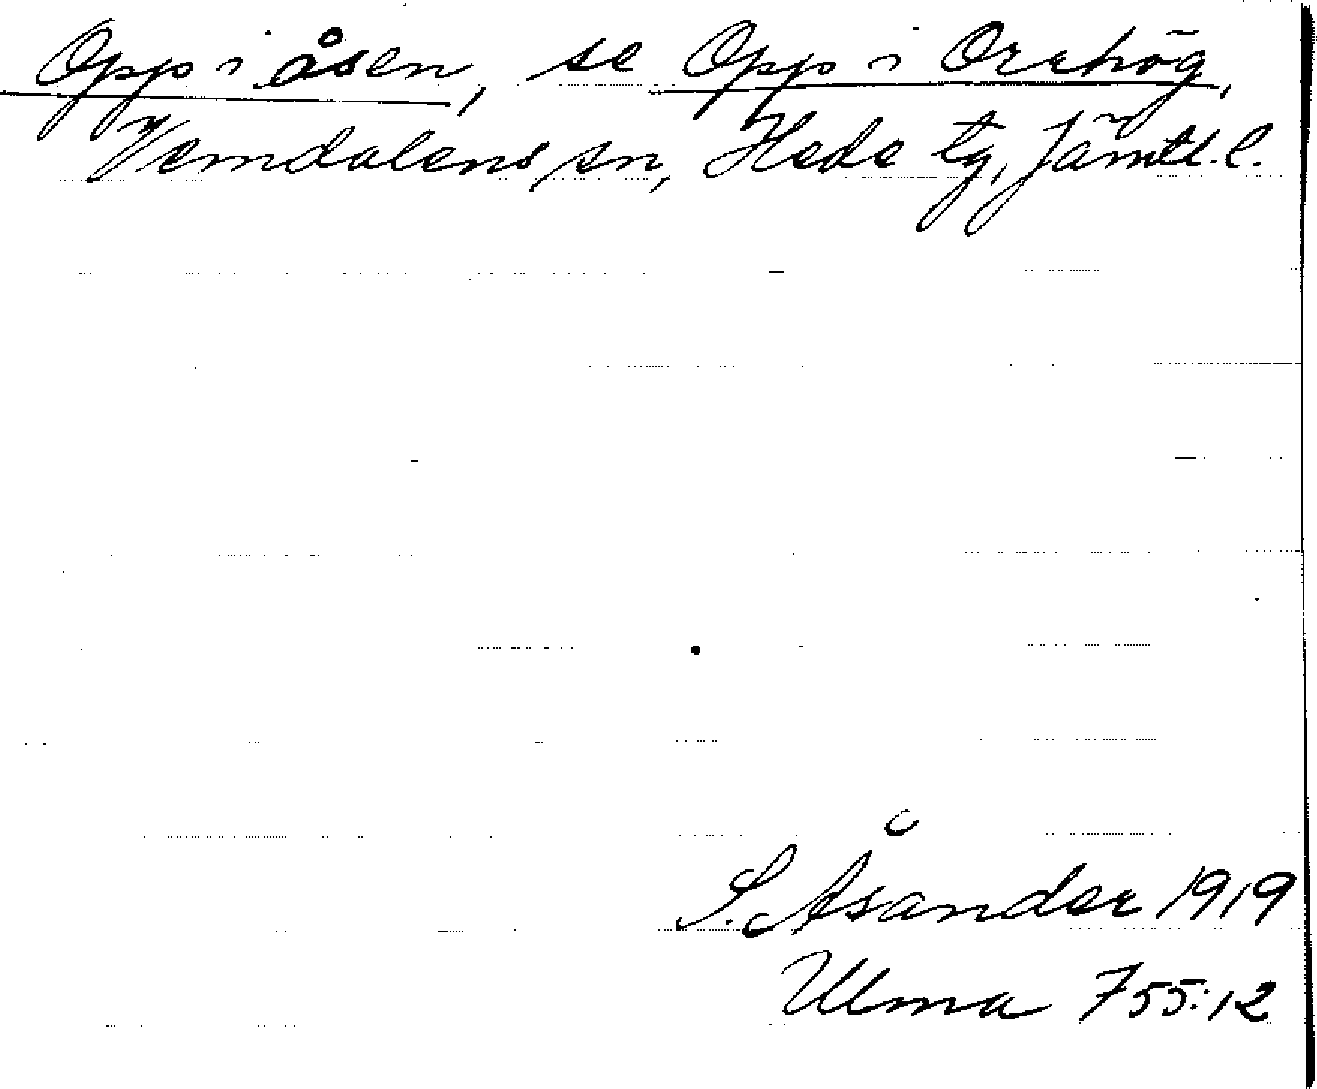 Opp i åsen, se Opp i Orrhög,
Vemdalens sn, Hede tg, Jämtl. l.
S. Åsander 1919
Ulma 755:12